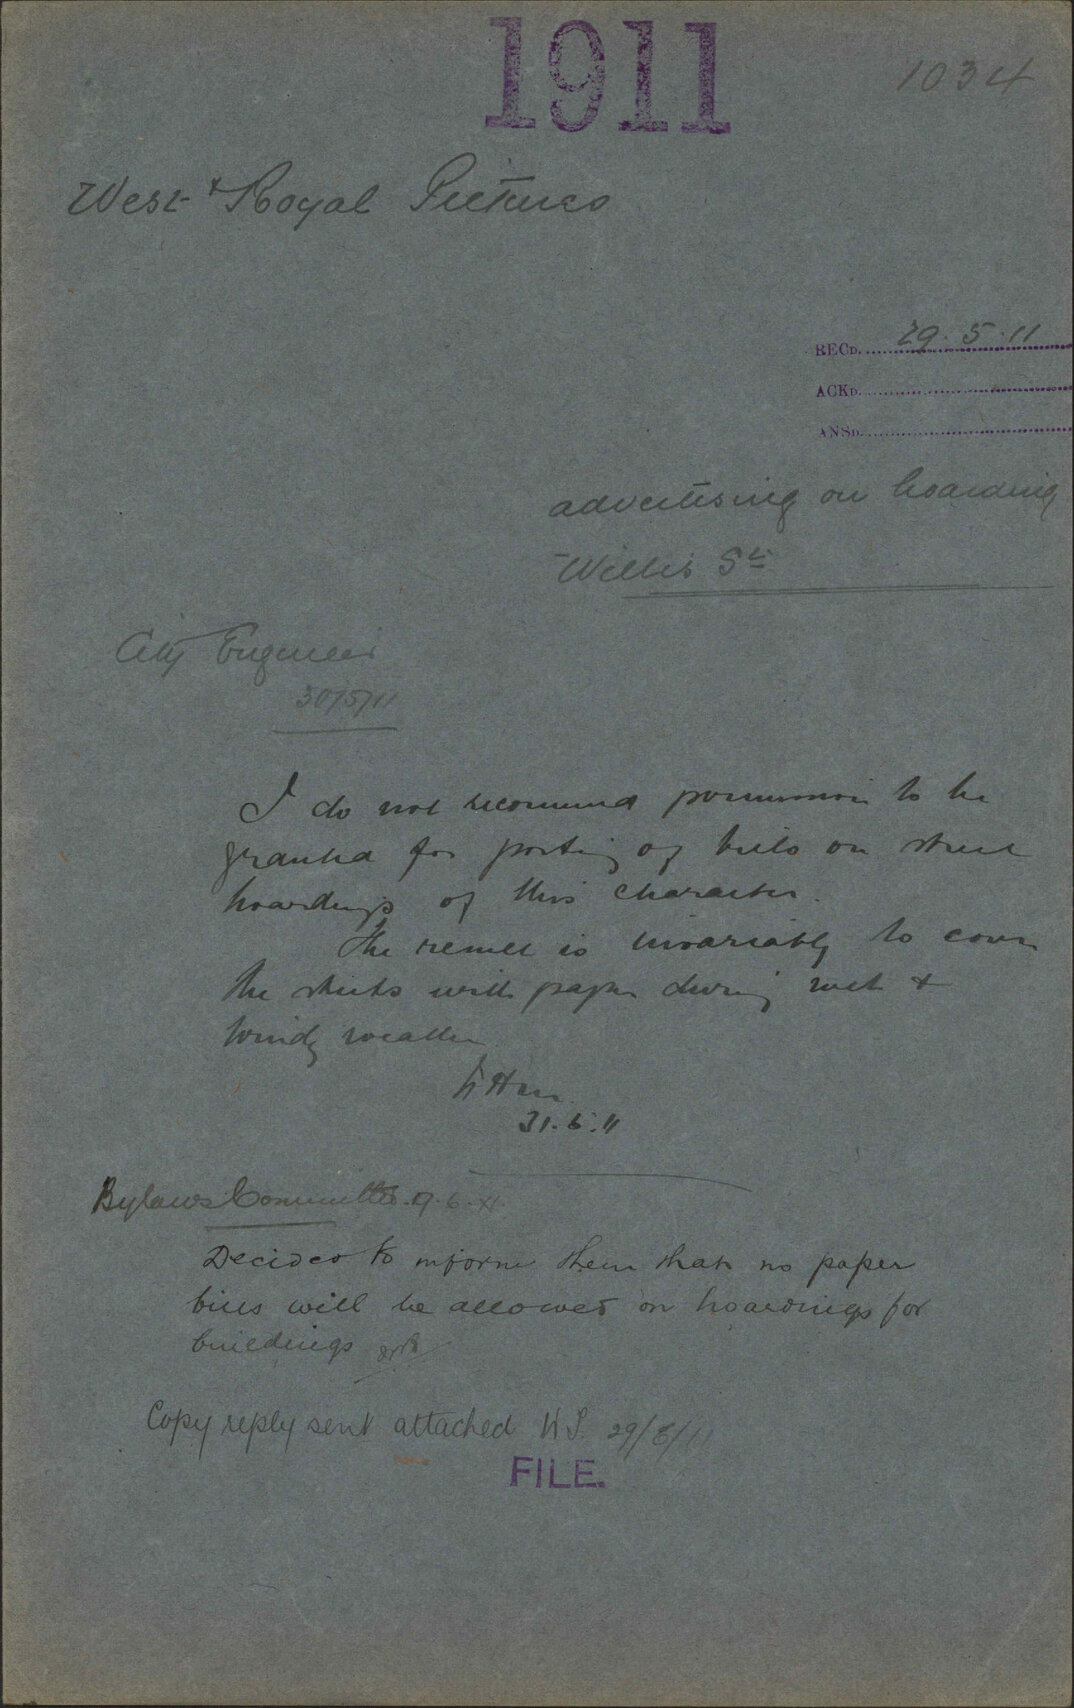 1911
1034
West & Royal Pictures
RECD. 29.5.11
ACKD.
ANSD.
advertising on hoarding
Willis St
City Engineer
30/5/11
I do not recommend permission to be
granted for posting of bills on street
hoardings of this character.
The result is invariably to cover
the streets with paper during wet &
windy weather
31.5.11
Bylaws Committee 9.6.11
Decided to inform them that no paper
bills will be allowed on hoardings for
buildings
Copy reply sent attached 29/8/11
FILE.